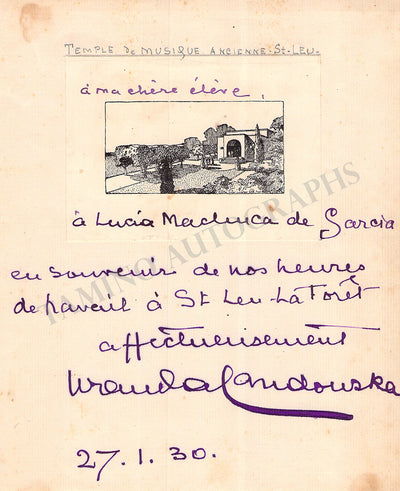 TEMPLE DE MUSIQUE ANCIENNE - ST-LEU -
à ma chère élève,
à Lucia Machuca de Garcia
en souvenir de nos heures
de travail à St Leu-La Forêt
affectueusement
Wanda Landowska
27.1.30.
TAMINO AUTOGRAPHS